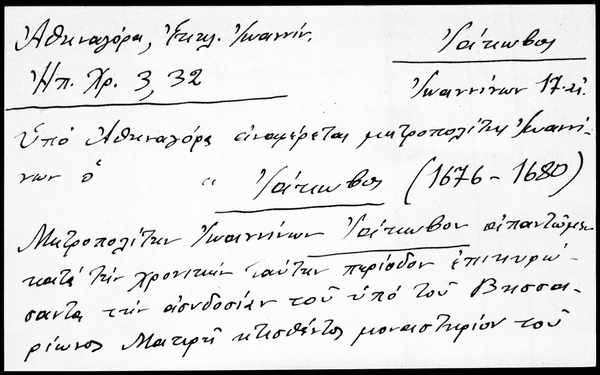 Ἀθηναγόρα, Ἐκκλ. Ἰωαννίν.
Ἠπ. Χρ. 3, 32
Ἰάκωβος
Ἰωαννίνων 17. αἰ.
Ὑπό Ἀθηναγόρα ἀναφέρεται μητροπολίτης Ἰωαννί-
νων ὁ " Ἰάκωβος (1676 - 1680)
Μητροπολίτην Ἰωαννίνων Ἰάκωβον ἀπαντῶμεν
κατά τήν χρονικήν ταύτην περίοδον ἐπικυρώ-
σαντα τήν ἀσυδοσίαν τοῦ ὑπό τοῦ Βησσα-
ρίωνος Μακρῆ κτισθέντος μοναστηρίου τοῦ